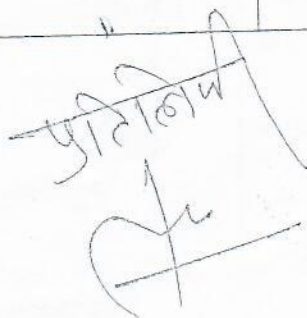 प्रतिलिपी